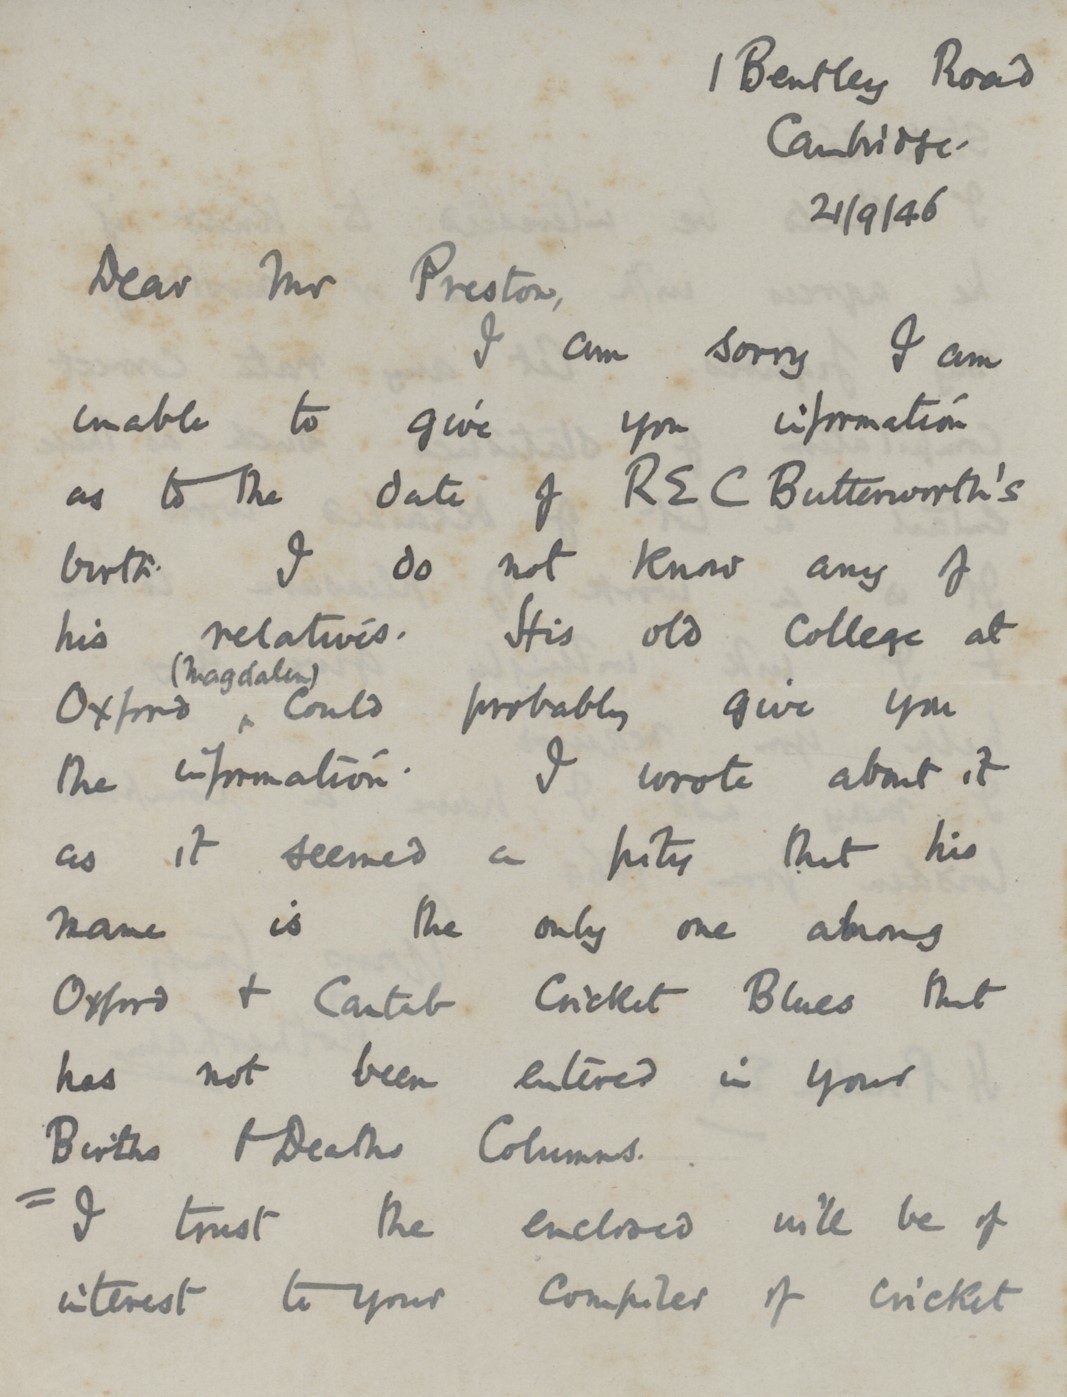 1 Bentley Road
Cambridge.
21/9/46
Dear Mr Preston,
I am sorry I am
unable to give you information
as to the date of R E C Butterworth's
birth. I do not know any of
his relatives. His old College at
(Magdalen)
Oxford ^ could probably give you
the information. I wrote about it
as it seemed a pity that his
name is the only one among
Oxford & Cantab Cricket Blues that
has not been entered in your
Births & Deaths Columns.
= I trust the enclosed will be of
interest to your Compiler of Cricket